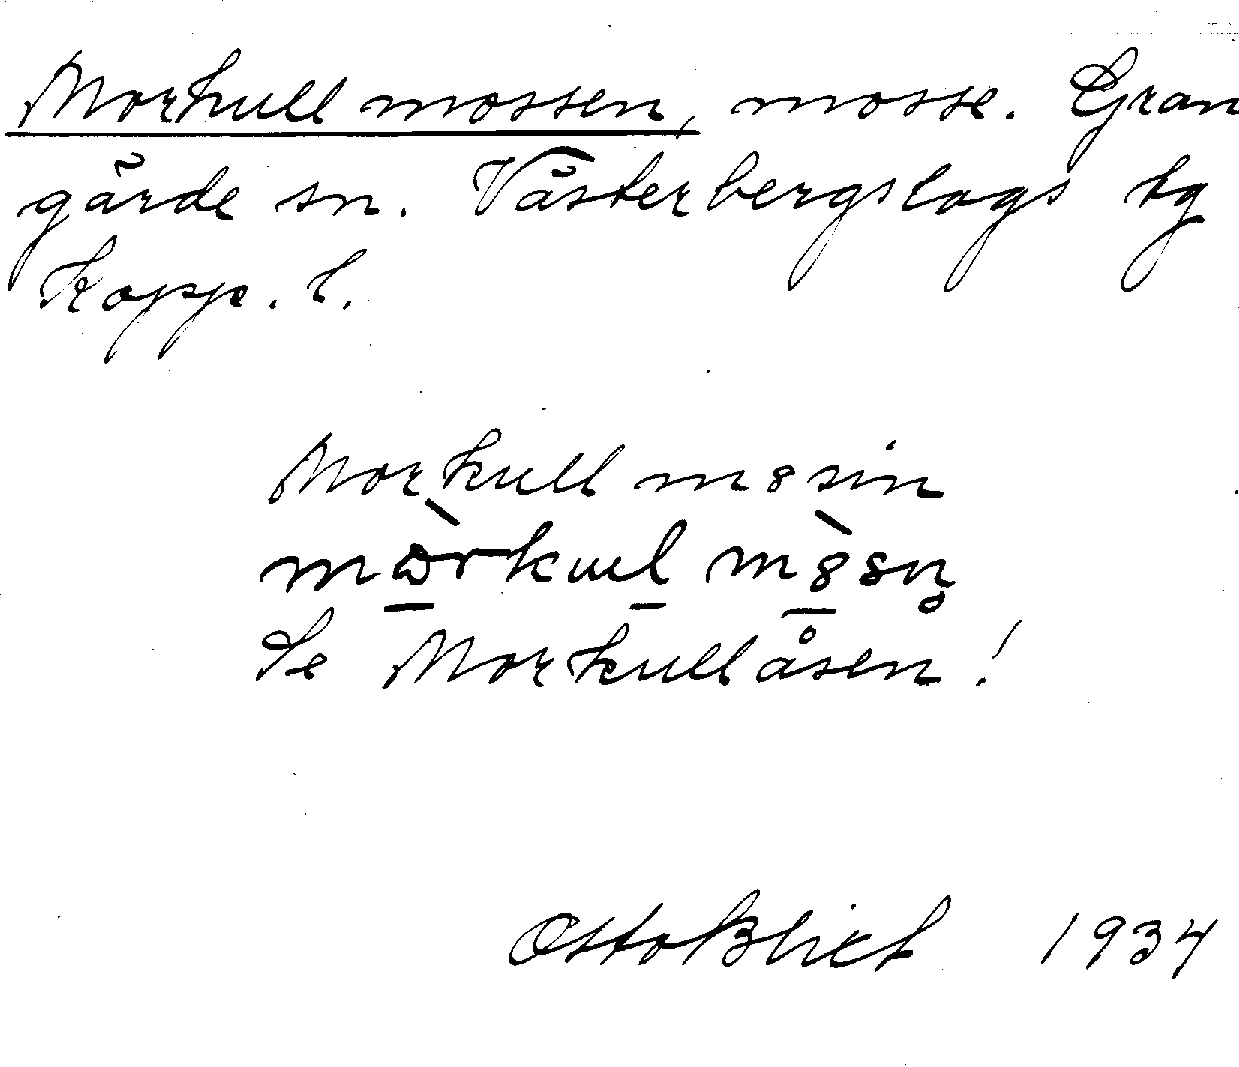 Morkull mossen, mosse. Gran
gärde sn. Västerbergslags tg
Kopp. l.
Morkull m8sin
mòrkul m8sn̥
Se Morkullåsen!
Otto Blixt 1934